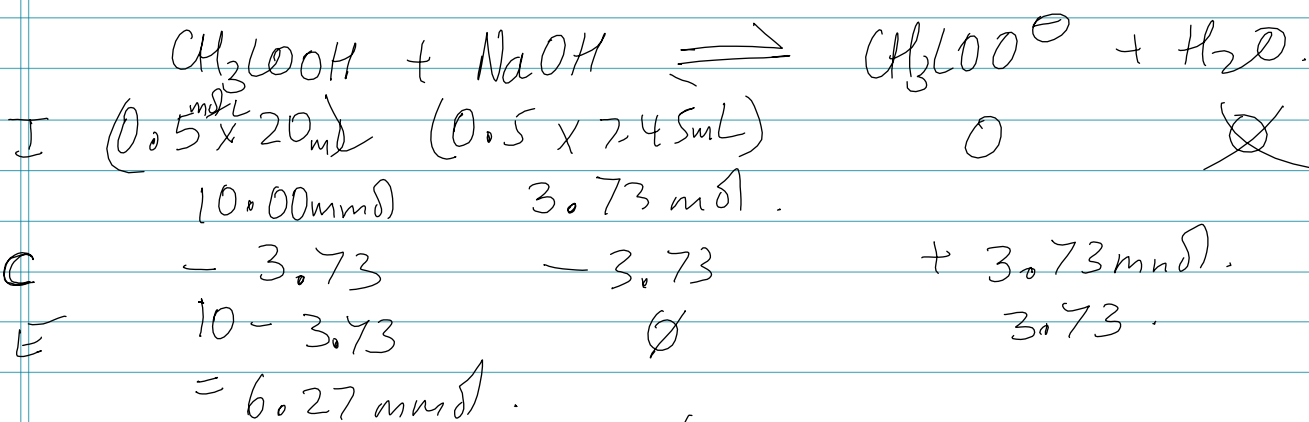 CH₃COOH + NaOH ⇌ CH₃COO⊖ + H₂O.
I (0.5 mol/L x 20mL (0.5 x 7.45mL) 0 0
10.00mmol 3.73 mol.
C - 3.73 - 3.73 + 3.73mmol.
E 10 - 3.73 Ø 3.73.
= 6.27 mmol.